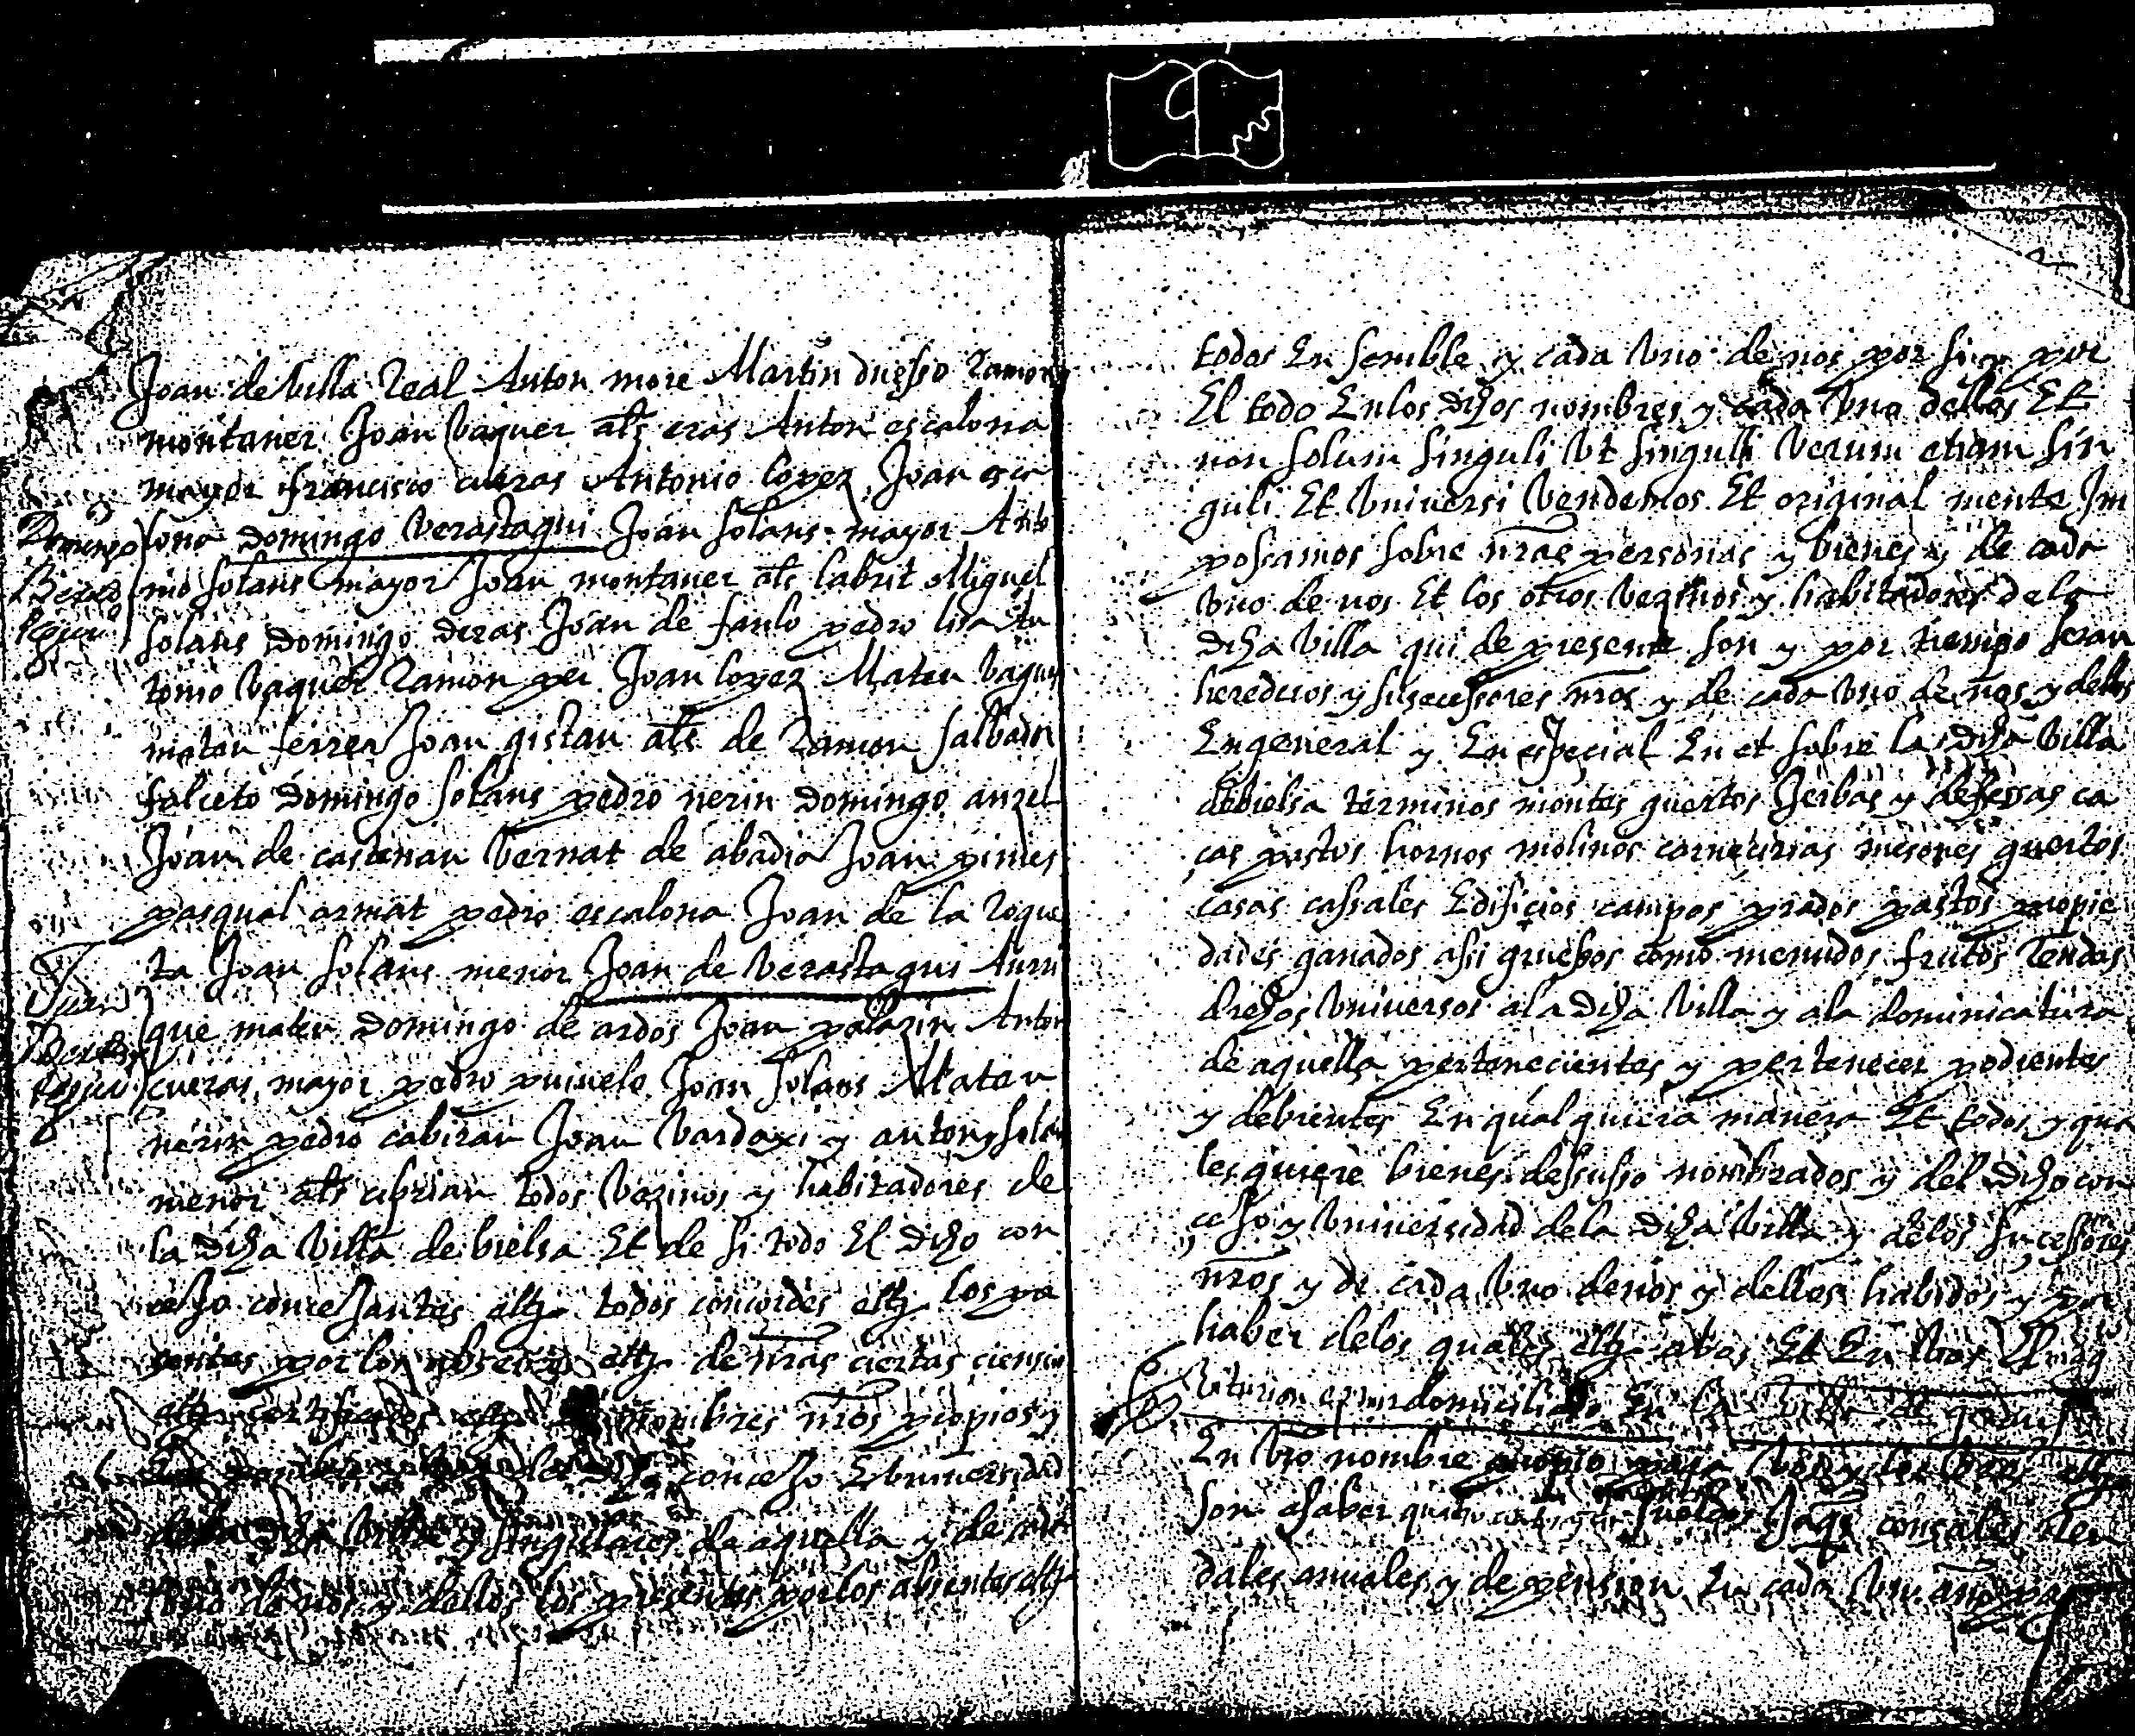 Joan de Villa Real Anton more Martin duesso Ramon
montaner Joan Vaquer als eras Anton escalona
mayor francisco cueras Antonio lopez Joan esca
lona domingo Verastagui Joan solans mayor Anto
nio solans mayor Joan montaner als labrit Miguel
solans domingo deras Joan de fanlo pedro lisa An
tonio Vaquer Ramon per Joan lopez Mateu Vaquer
mateu ferrer Joan gistau als de Ramon salbador
falceto domingo solans pedro nerin domingo anzel
Joan de castenau Vernat de abadia Joan pines
pasqual armat pedro escalona Joan de la Roque
ta Joan solans menor Joan de Verastagui Anri
que mateu domingo de ardos Joan palazin Anton
cueras mayor pedro puiuelo Joan solans Mateu
nerin pedro cabirau Joan Vardaxi y anton solans
menor als ciprian todos Vezinos y habitadores de
la dicha Villa de bielsa Et de si todo El dicho con
cejo concejantes etc todos concordes etc los pre
sentes por los absentes etc de nras ciertas ciencias
etc certificados etc nombres nros propios y
concejo E Vniuersidad
dicha Villa y singulares de aquella y de cada
Vno de nos y dellos los presentes por los absentes etc
Domingo
Juan
2
todos En semble y cada Vno de nos por si y por
El todo En los dichos nombres y cada Vno dellos Et
non solum singuli Vt singuli Verum etiam sin
guli Et Vniuersi Vendemos Et original mente Im
posamos sobre nras personas y bienes y de cada
Vno de nos Et los otros Vezinos y habitadores de la
dicha Villa qui de presente son y por tiempo seran
herederos y susecessores nros y de cada Vno de nos y dellos
En general y En especial En et sobre la dicha Villa
de bielsa terminos montes guertos Jerbas y defessas ca
ças pastos hornos molinos carnecerias mesones guertos
casas cassales Edificios campos prados pastos propie
dades ganados assi gruesos como menudos frutos Rendas
drechos Vniuersos a la dicha Villa y a la dominicatura
de aquella pertenecientes y pertenecer podientes
y debientes En qualquiera manera Et todos y qua
lesquiere bienes dessusso nombrados y del dicho con
cejo y Vniuersidad de la dicha Villa y de los sucessores
nros y de cada Vno de nos y dellos habidos y por
haber de los quales etc a bos Et En Vos
domiciliado En la Villa de
En Vro nombre propio para Vos y los Vros etc
son a saber sueldos Jaqs censales Ren
dales annuales y de pension En cada Vn año